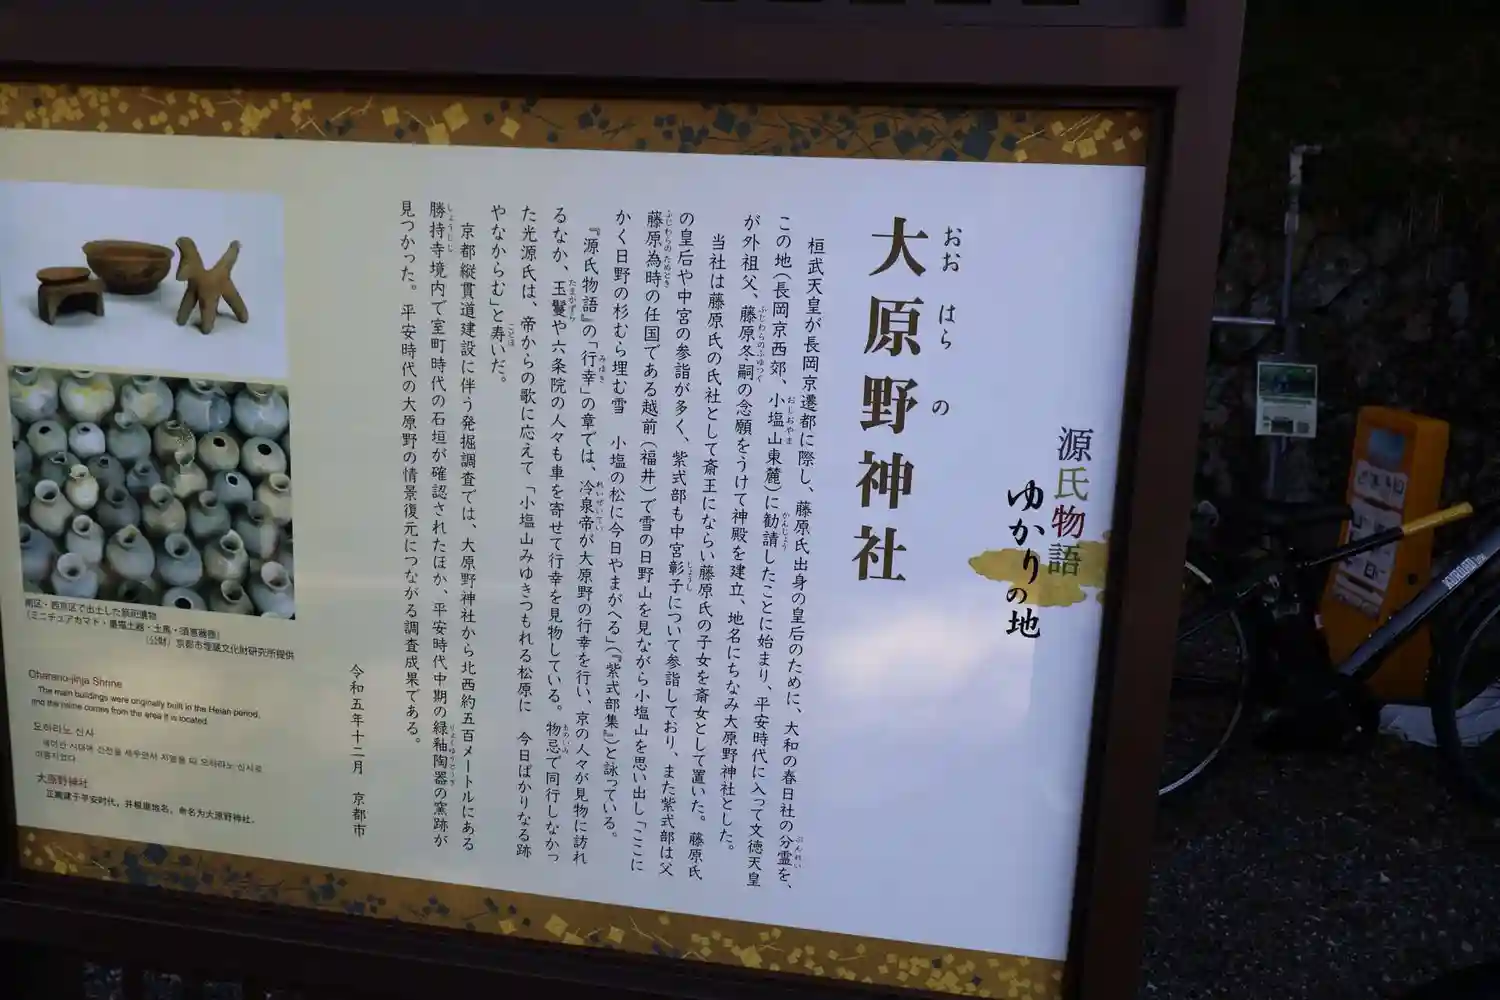 源氏物語
ゆかりの地
おお はら の
大原野神社
桓武天皇が長岡京遷都に際し、藤原氏出身の皇后のために、大和の春日社の分霊を、
この地(長岡京西郊、小塩山東麓)に勧請したことに始まり、平安時代に入って文徳天皇
が外祖父、藤原冬嗣の念願をうけて神殿を建立、地名にちなみ大原野神社とした。
当社は藤原氏の氏社として斎王にならい藤原氏の子女を斎女として置いた。藤原氏
の皇后や中宮の参詣が多く、紫式部も中宮彰子について参詣しており、また紫式部は父
藤原為時の任国である越前(福井)で雪の日野山を見ながら小塩山を思い出し「ここに
かく日野の杉むら埋む雪 小塩の松に今日やまがへる」(『紫式部集』)と詠っている。
『源氏物語』の「行幸」の章では、冷泉帝が大原野の行幸を行い、京の人々が見物に訪れ
るなか、玉鬘や六条院の人々も車を寄せて行幸を見物している。物忌で同行しなかっ
た光源氏は、帝からの歌に応えて「小塩山みゆきつもれる松原に 今日ばかりなる跡
やなからむ」と寿いだ。
京都縦貫道建設に伴う発掘調査では、大原野神社から北西約五百メートルにある
勝持寺境内で室町時代の石垣が確認されたほか、平安時代中期の緑釉陶器の窯跡が
見つかった。平安時代の大原野の情景復元につながる調査成果である。
令和五年十二月 京都市
南区・西京区で出土した祭祀遺物
(ミニチュアカマド・墨描土器・土馬・須恵器壺)
(公財)京都市埋蔵文化財研究所提供
Oharano-jinja Shrine
The main buildings were originally built in the Heian period,
and the name comes from the area it is located.
오하라노 신사
헤이안 시대에 신전을 세우면서 지명을 따 오하라노 신사로
이름지었다
大原野神社
正殿建于平安时代，并根据地名，命名为大原野神社。